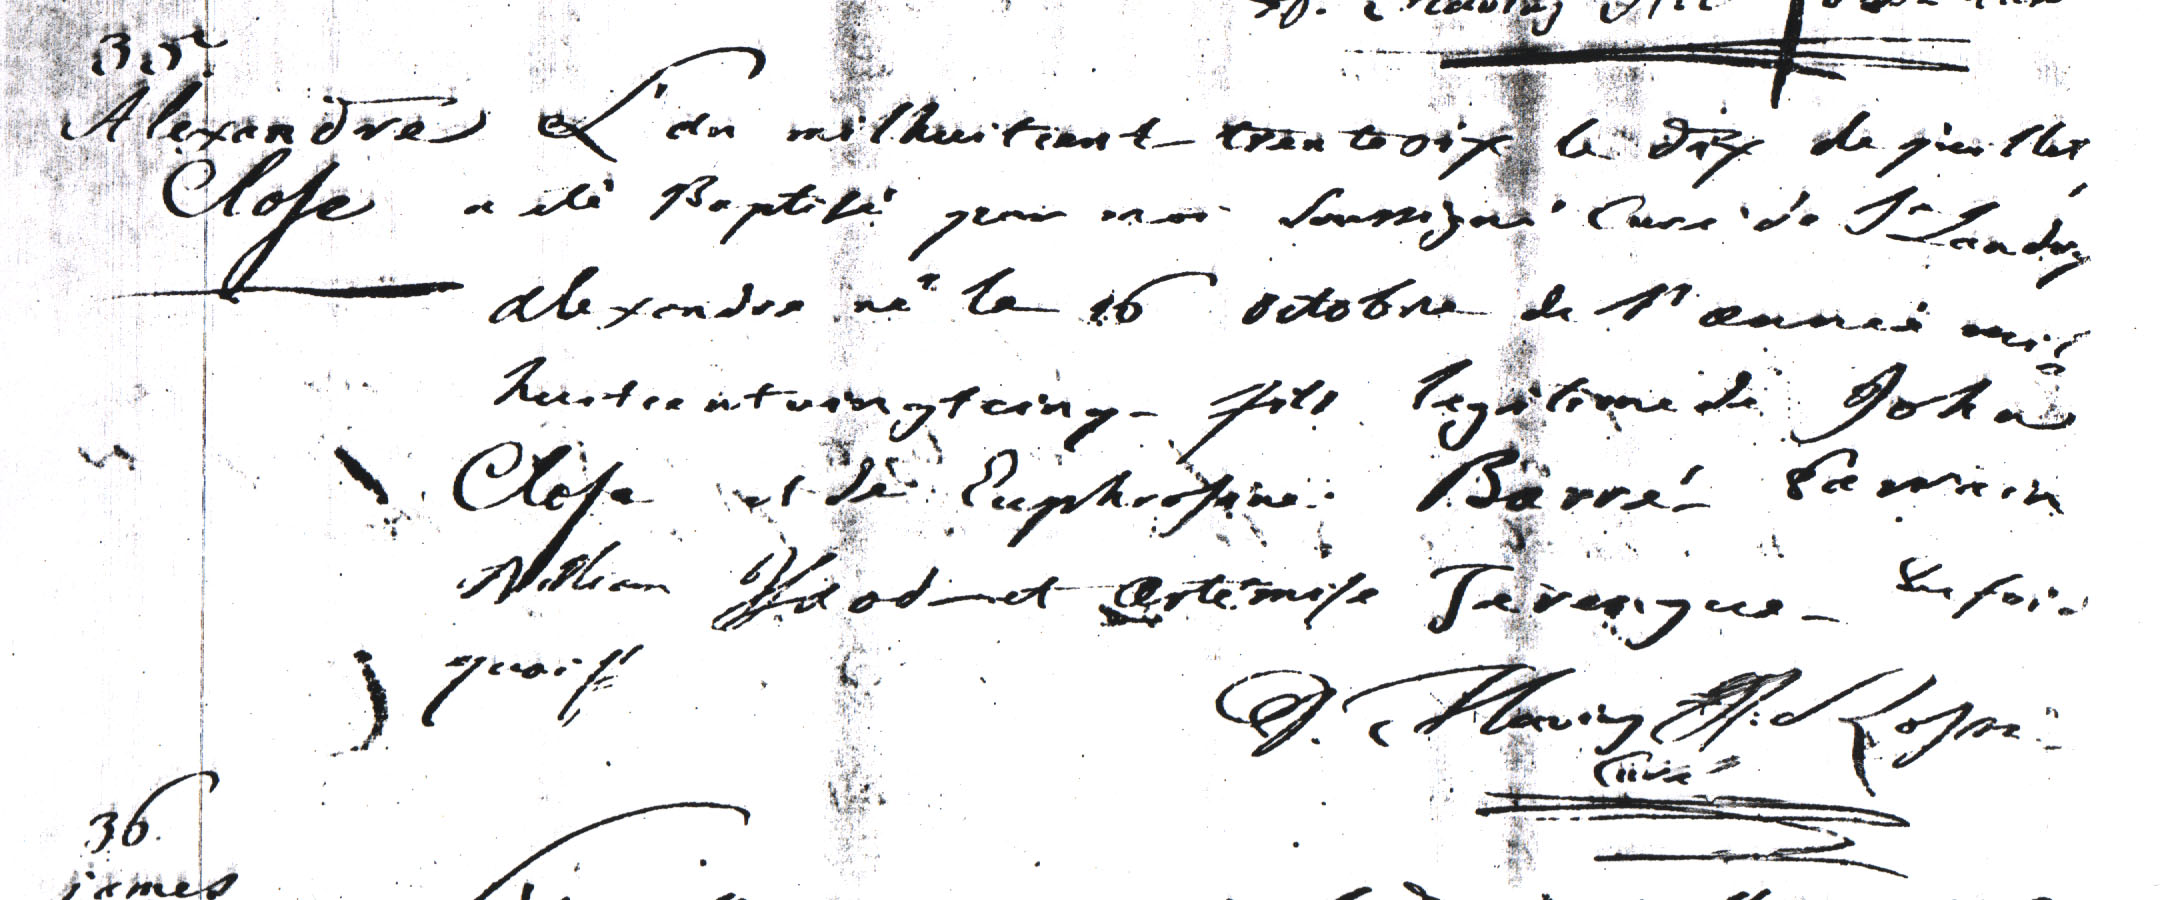 35.
Alexandre L'an mil huit cent trente six le dix de juillet
Close a été Baptisé par moi soussigné Curé de St Landry
alexandre né le 16 octobre de l'année mil
huit cent vingt cinq fils legitime de John
Close et de Euphrosine Barré Parrain
William et Artémise
quoi
Flavius Curé
36
james